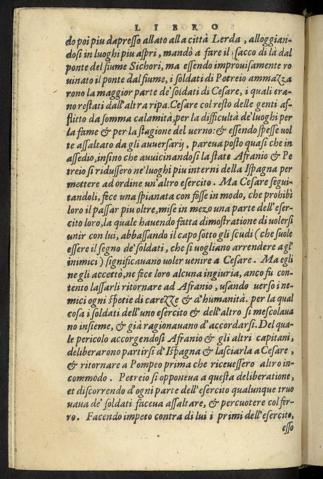 LIBRO
do poi piu dapresso allato alla città Lerda, alloggian-
dosi in luoghi piu aspri, mandò a fare il sacco di là dal
ponte del fiume Sichori, ma essendo improuisamente ro
uinato il ponte dal fiume, i soldati di Petreio ammazza
rono la maggior parte de' soldati di Cesare, i quali era-
no restati dall'altra ripa. Cesare col resto delle genti af-
flitto da somma calamità, per la difficultà de' luoghi per
la fame & per la stagione del uerno: & essendo spesse uol
te assaltato da gli auuersarij, pareua posto quasi che in
assedio, insino che auuicinandosi la state Afranio & Pe
treio si ridussero ne' luoghi piu interni della Ispagna per
mettere ad ordine un'altro esercito. Ma Cesare segui-
tandoli, fece una spianata con fosse in modo, che prohibì
loro il passar piu oltre, mise in mezo una parte dell'eser-
cito loro, la quale hauendo fatta dimostratione di uolersi
unir con lui, abbassando il capo sotto gli scudi (che suole
essere il segno de' soldati, che si uogliano arrendere a gl'
inimici) significauano uoler uenire a Cesare. Ma egli
ne gli accettò, ne fece loro alcuna ingiuria, anco fu con-
tento lassarli ritornare ad Afranio, usando uerso i ne-
mici ogni spetie di carezze & d'humanità. per la qual
cosa i soldati dell'uno esercito & dell'altro si mescolaua
no insieme, & già ragionauano d'accordarsi. Del qua-
le pericolo accorgendosi Afranio & gli altri capitani,
deliberarono partirsi d'Ispagna & lasciarla a Cesare,
& ritornare a Pompeo prima che riceuessero altro in-
commodo. Petreio si opponeua a questa deliberatione,
et discorrendo d'ogni parte dell'esercito qualunque truo
uaua de' soldati faceua assaltare, & percuotere col fer-
ro. Facendo impeto contra di lui i primi dell'esercito,
esso